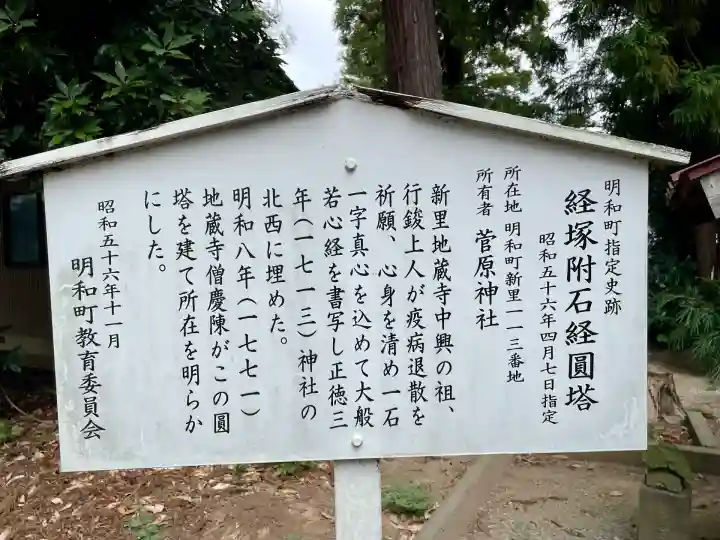 明和町指定史跡
経塚附石経圓塔
昭和五十六年四月七日指定
所在地 明和町新里一一三番地
所有者 菅原神社
新里地蔵寺中興の祖、
行鍐上人が疫病退散を
祈願、心身を清め一石
一字真心を込めて大般
若心経を書写し正徳三
年(一七一三)神社の
北西に埋めた。
明和八年(一七七一)
地蔵寺僧慶陳がこの圓
塔を建て所在を明らか
にした。
昭和五十六年十一月
明和町教育委員会